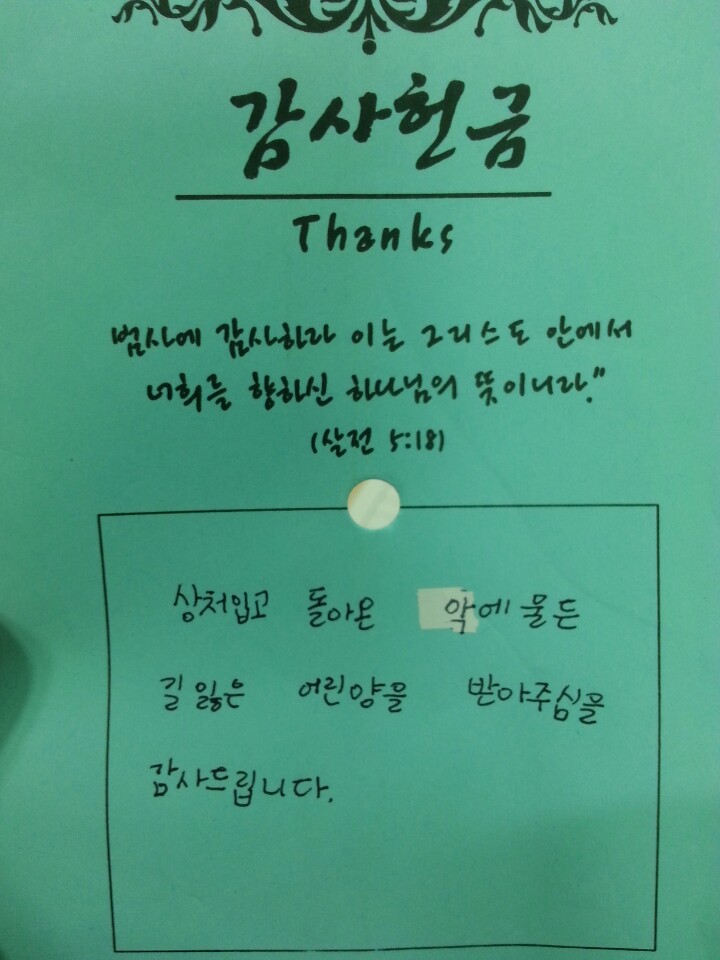 감사헌금
Thanks
범사에 감사하라 이는 그리스도 안에서
너희를 향하신 하나님의 뜻이니라."
(살전 5:18)
상처입고 돌아온 악에 물든
길 잃은 어린양을 받아주심을
감사드립니다.